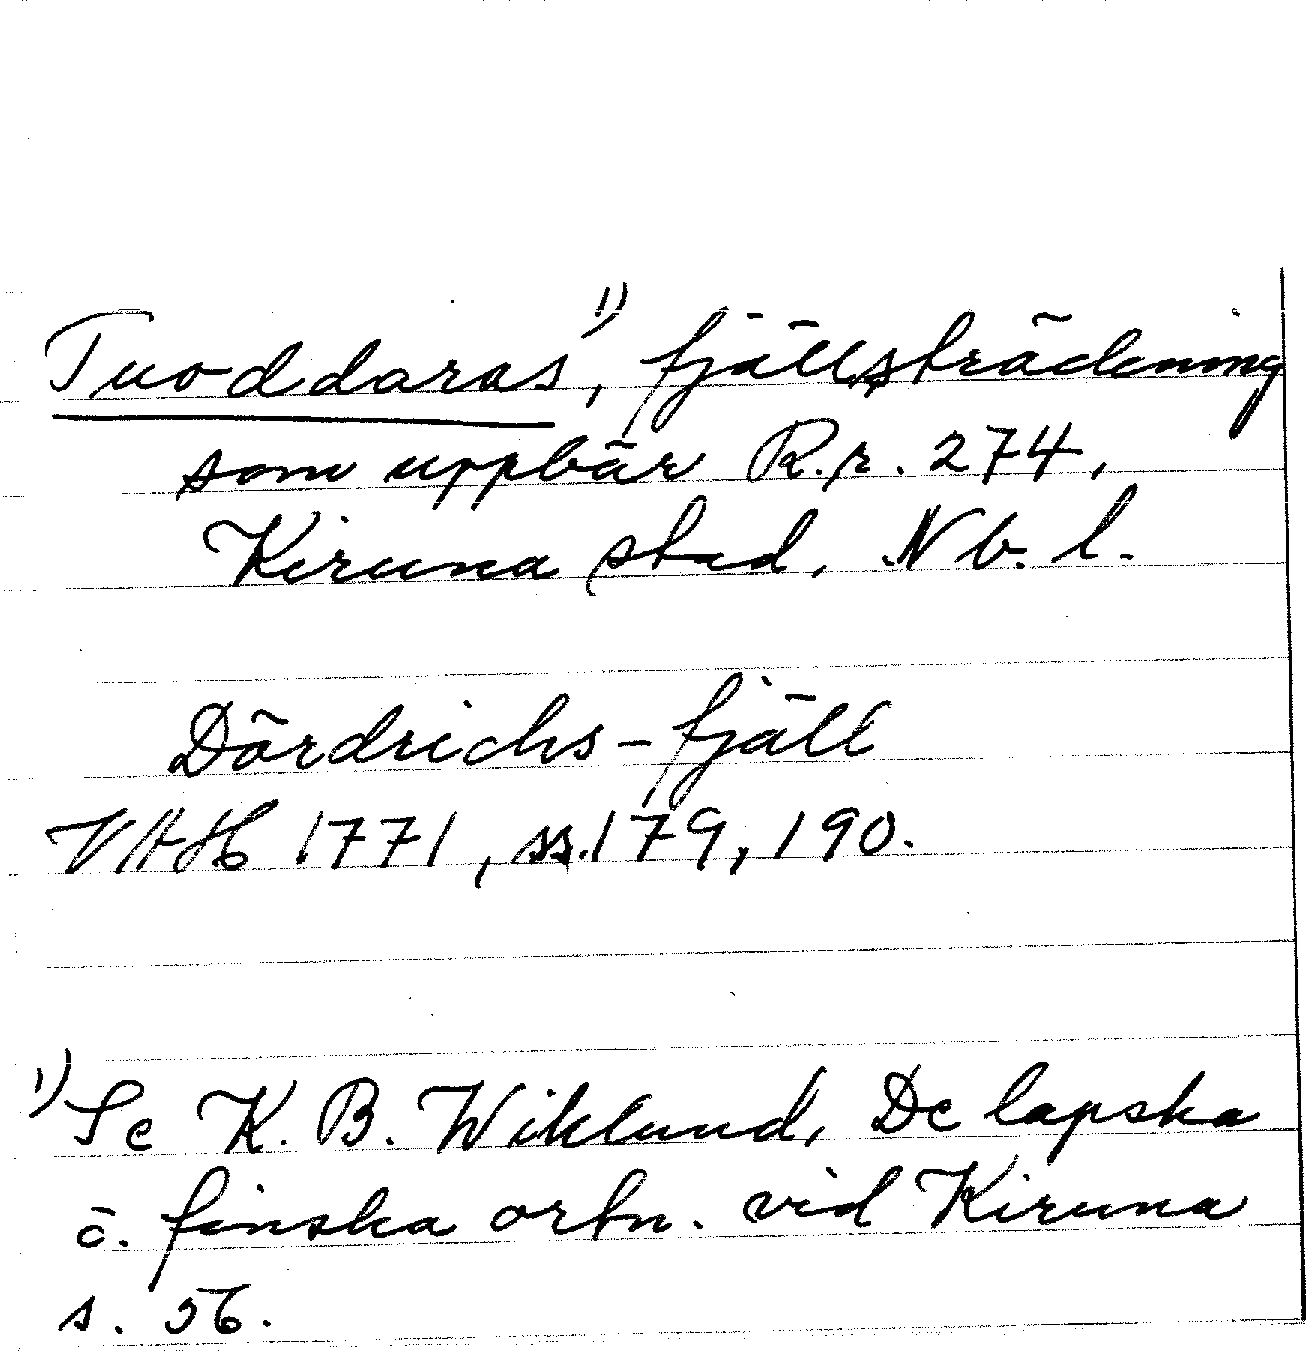 Tuoddaras¹⁾, fjällsträckning
som uppbär R.r. 274,
Kiruna stad, Nb. l.
Dördrichs-fjäll
VAH 1771, ss. 179, 190.
¹⁾ Se K. B. Wiklund, De lapska
o. finska ortn. vid Kiruna
s. 56.